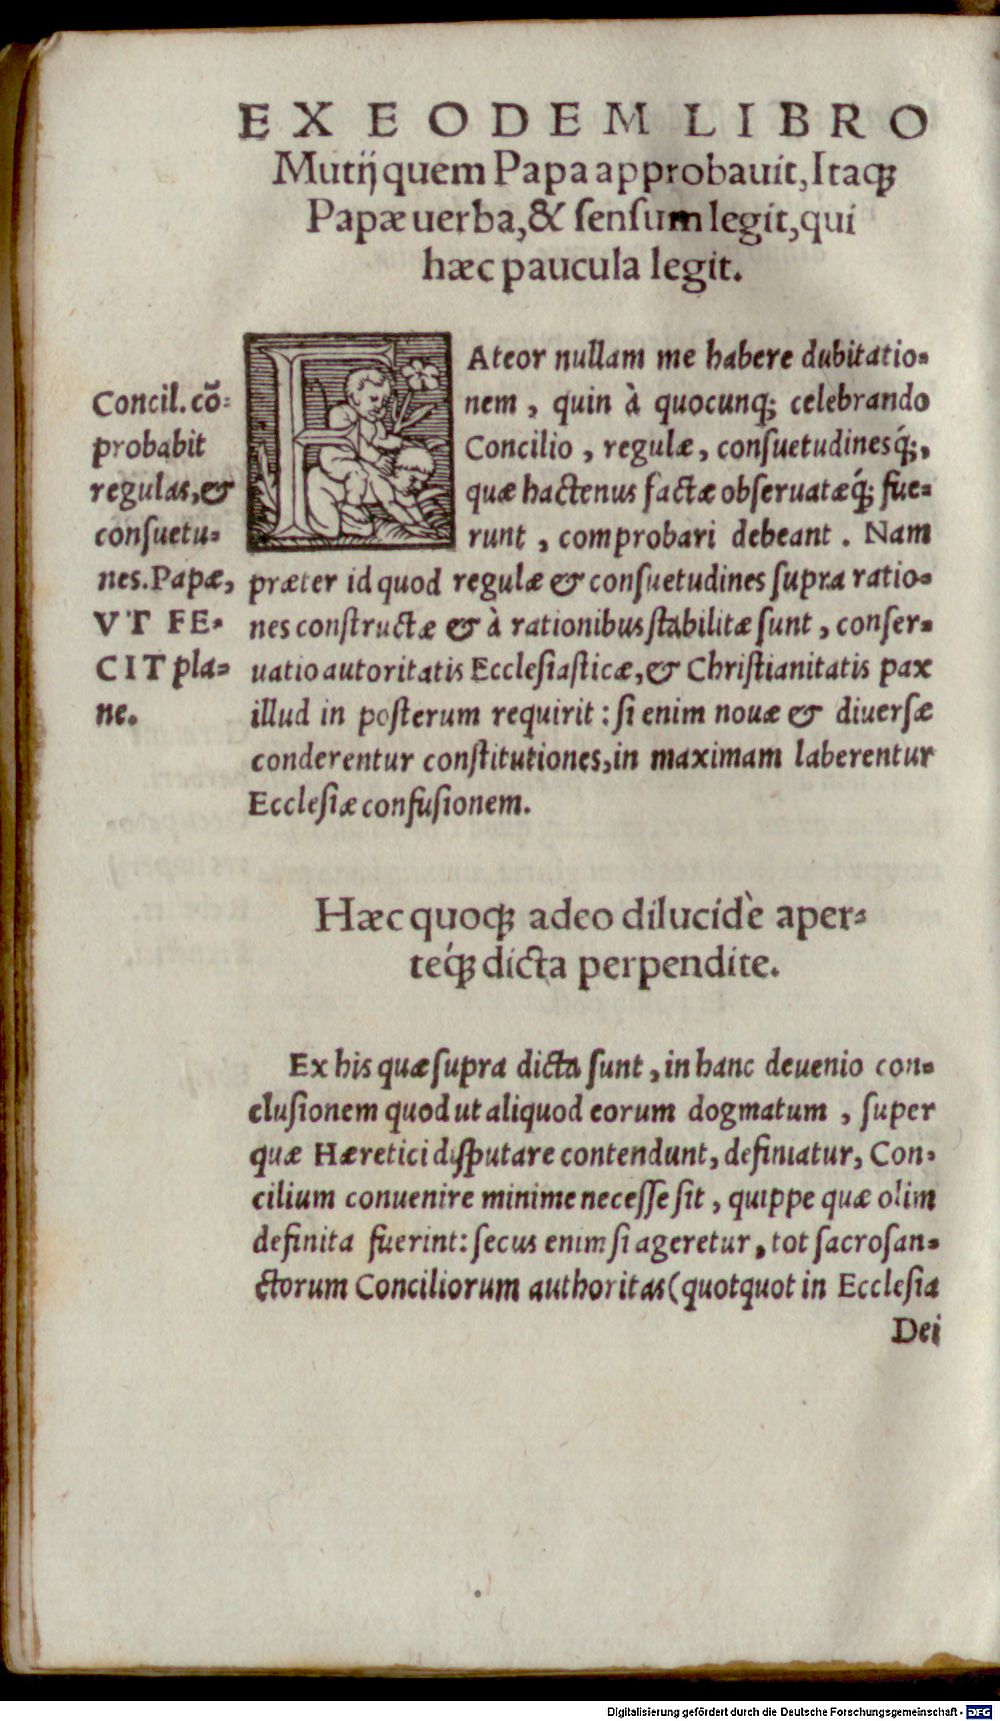 EX EODEM LIBRO
Mutij quem Papa approbauit, Itaq́;
Papæ uerba, & sensum legit, qui
hæc paucula legit.
Concil. cō-
probabit
regulas, &
consuetu-
nes. Papæ,
VT FE-
CIT pla-
ne.
FAteor nullam me habere dubitatio-
nem, quin à quocunq; celebrando
Concilio, regulæ, consuetudinesq́;,
quæ hactenus factæ obseruatæq́; fue-
runt, comprobari debeant. Nam
præter id quod regulæ & consuetudines supra ratio-
nes constructæ & à rationibus stabilitæ sunt, conser-
uatio autoritatis Ecclesiasticæ, & Christianitatis pax
illud in posterum requirit: si enim nouæ & diuersæ
conderentur constitutiones, in maximam laberentur
Ecclesiæ confusionem.
Hæc quoq; adeo dilucidè aper-
teq́; dicta perpendite.
Ex his quæ supra dicta sunt, in hanc deuenio con-
clusionem quod ut aliquod eorum dogmatum, super
quæ Hæretici disputare contendunt, definiatur, Con-
cilium conuenire minime necesse sit, quippe quæ olim
definita fuerint: secus enim si ageretur, tot sacrosan-
ctorum Conciliorum authoritas (quotquot in Ecclesia
Dei
Digitalisierung gefördert durch die Deutsche Forschungsgemeinschaft - DFG